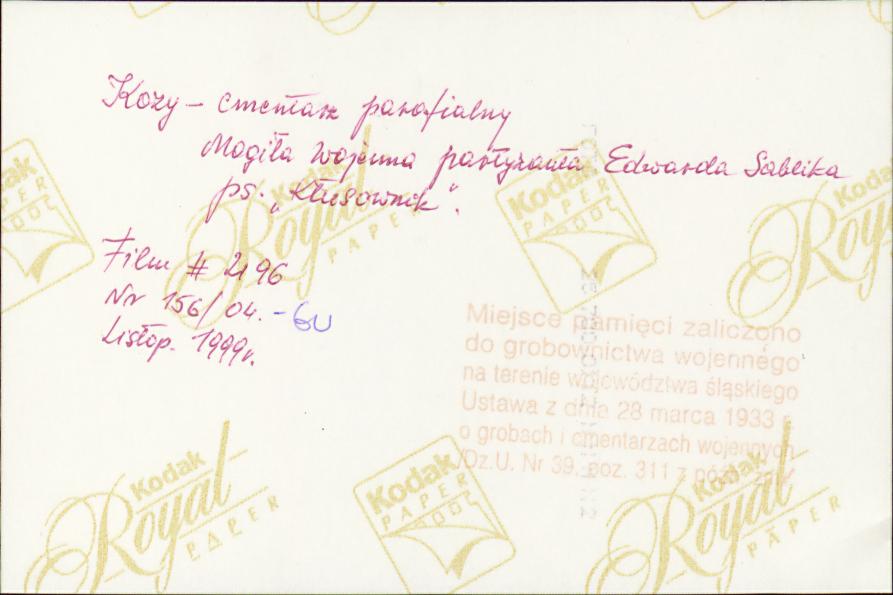 Kozy – cmentarz parafialny
Mogiła wojenna partyzanta Edwarda Sablika
ps. „Kłusownik".
Film # 2196
Nr 156/04. - GU
Listop. 1999r.
Miejsce pamięci zaliczono
do grobownictwa wojennego
na terenie województwa śląskiego
Ustawa z dnia 28 marca 1933 r.
o grobach i cmentarzach wojennych
/Dz.U. Nr 39, poz. 311 z późn. zm./
Kodak
Royal
PAPER
Kodak
PAPER
Kodak
Royal
PAPER
Kodak
PAPER
Kodak
Royal
PAPER